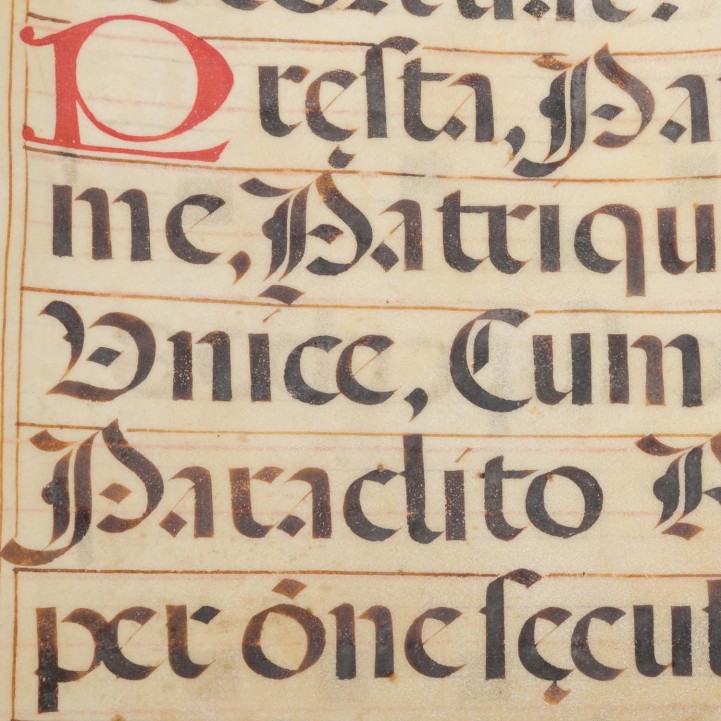 Pręſta, Pa
me, Patriqu
Vnice, Cum
Paraclíto R
per óne ſęcul